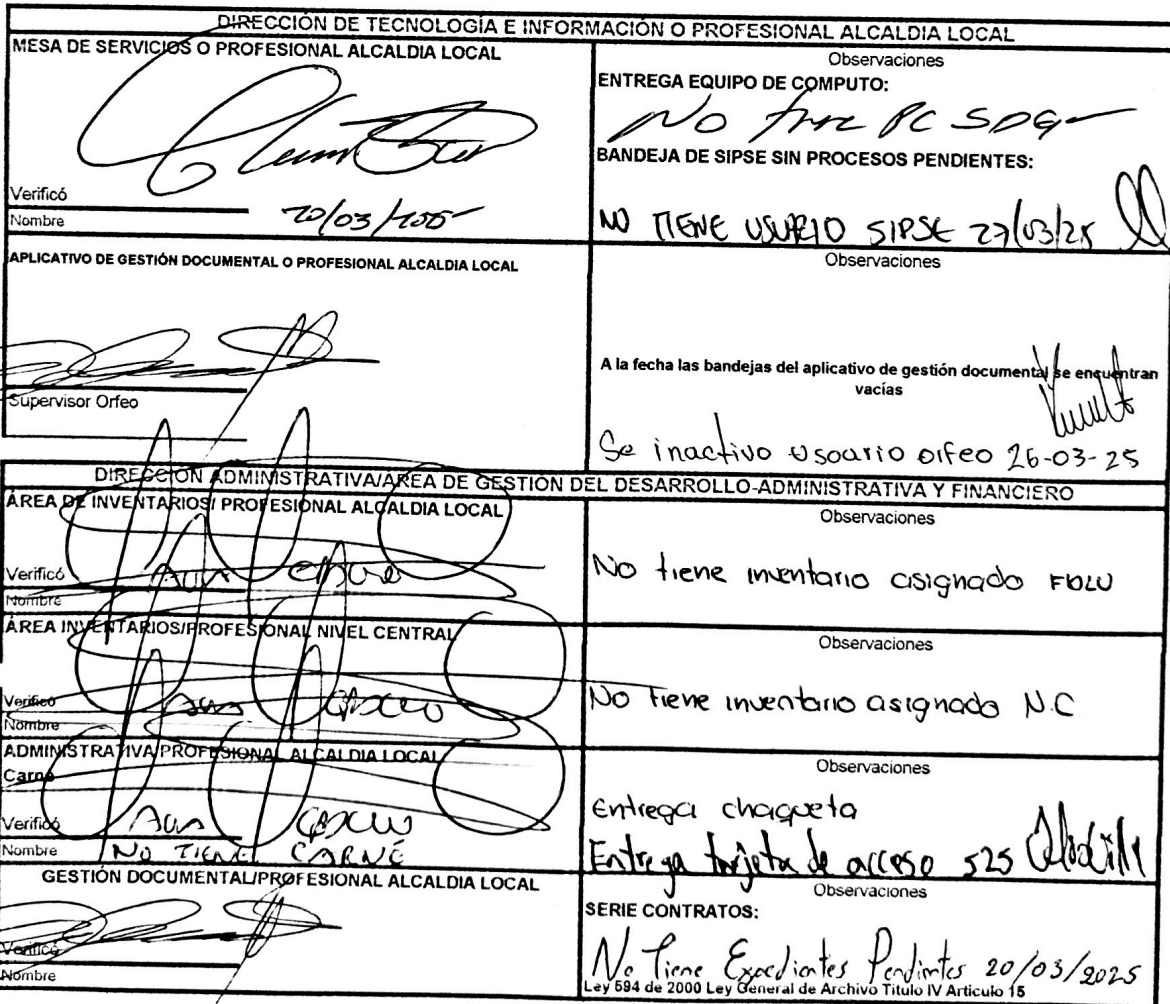 DIRECCIÓN DE TECNOLOGÍA E INFORMACIÓN O PROFESIONAL ALCALDIA LOCAL
MESA DE SERVICIOS O PROFESIONAL ALCALDIA LOCAL
Verificó
Nombre
20/03/
Observaciones
ENTREGA EQUIPO DE COMPUTO:
No PC SDG
BANDEJA DE SIPSE SIN PROCESOS PENDIENTES:
NO TIENE USUARIO SIPSE 27/03/25
APLICATIVO DE GESTIÓN DOCUMENTAL O PROFESIONAL ALCALDIA LOCAL
Supervisor Orfeo
Observaciones
A la fecha las bandejas del aplicativo de gestión documental se encuentran
vacías
Se inactivo usoario orfeo 26-03-25
DIRECCIÓN ADMINISTRATIVA/AREA DE GESTIÓN DEL DESARROLLO-ADMINISTRATIVA Y FINANCIERO
ÁREA DE INVENTARIOS/ PROFESIONAL ALCALDIA LOCAL
Verificó
Nombre
Observaciones
No tiene inventario asignado FDLU
ÁREA INVENTARIOS/PROFESIONAL NIVEL CENTRAL
Verificó
Nombre
Observaciones
No tiene inventario asignado N.C
ADMINISTRATIVA/PROFESIONAL ALCALDIA LOCAL
Carné
Verificó
Nombre NO TIENE CARNÉ
Observaciones
Entrega chaqueta
Entrega tarjeta de acceso 525
GESTIÓN DOCUMENTAL/PROFESIONAL ALCALDIA LOCAL
Verificó
Nombre
Observaciones
SERIE CONTRATOS:
No Tiene Expedientes Pendintes 20/03/2025
Ley 594 de 2000 Ley General de Archivo Titulo IV Articulo 15